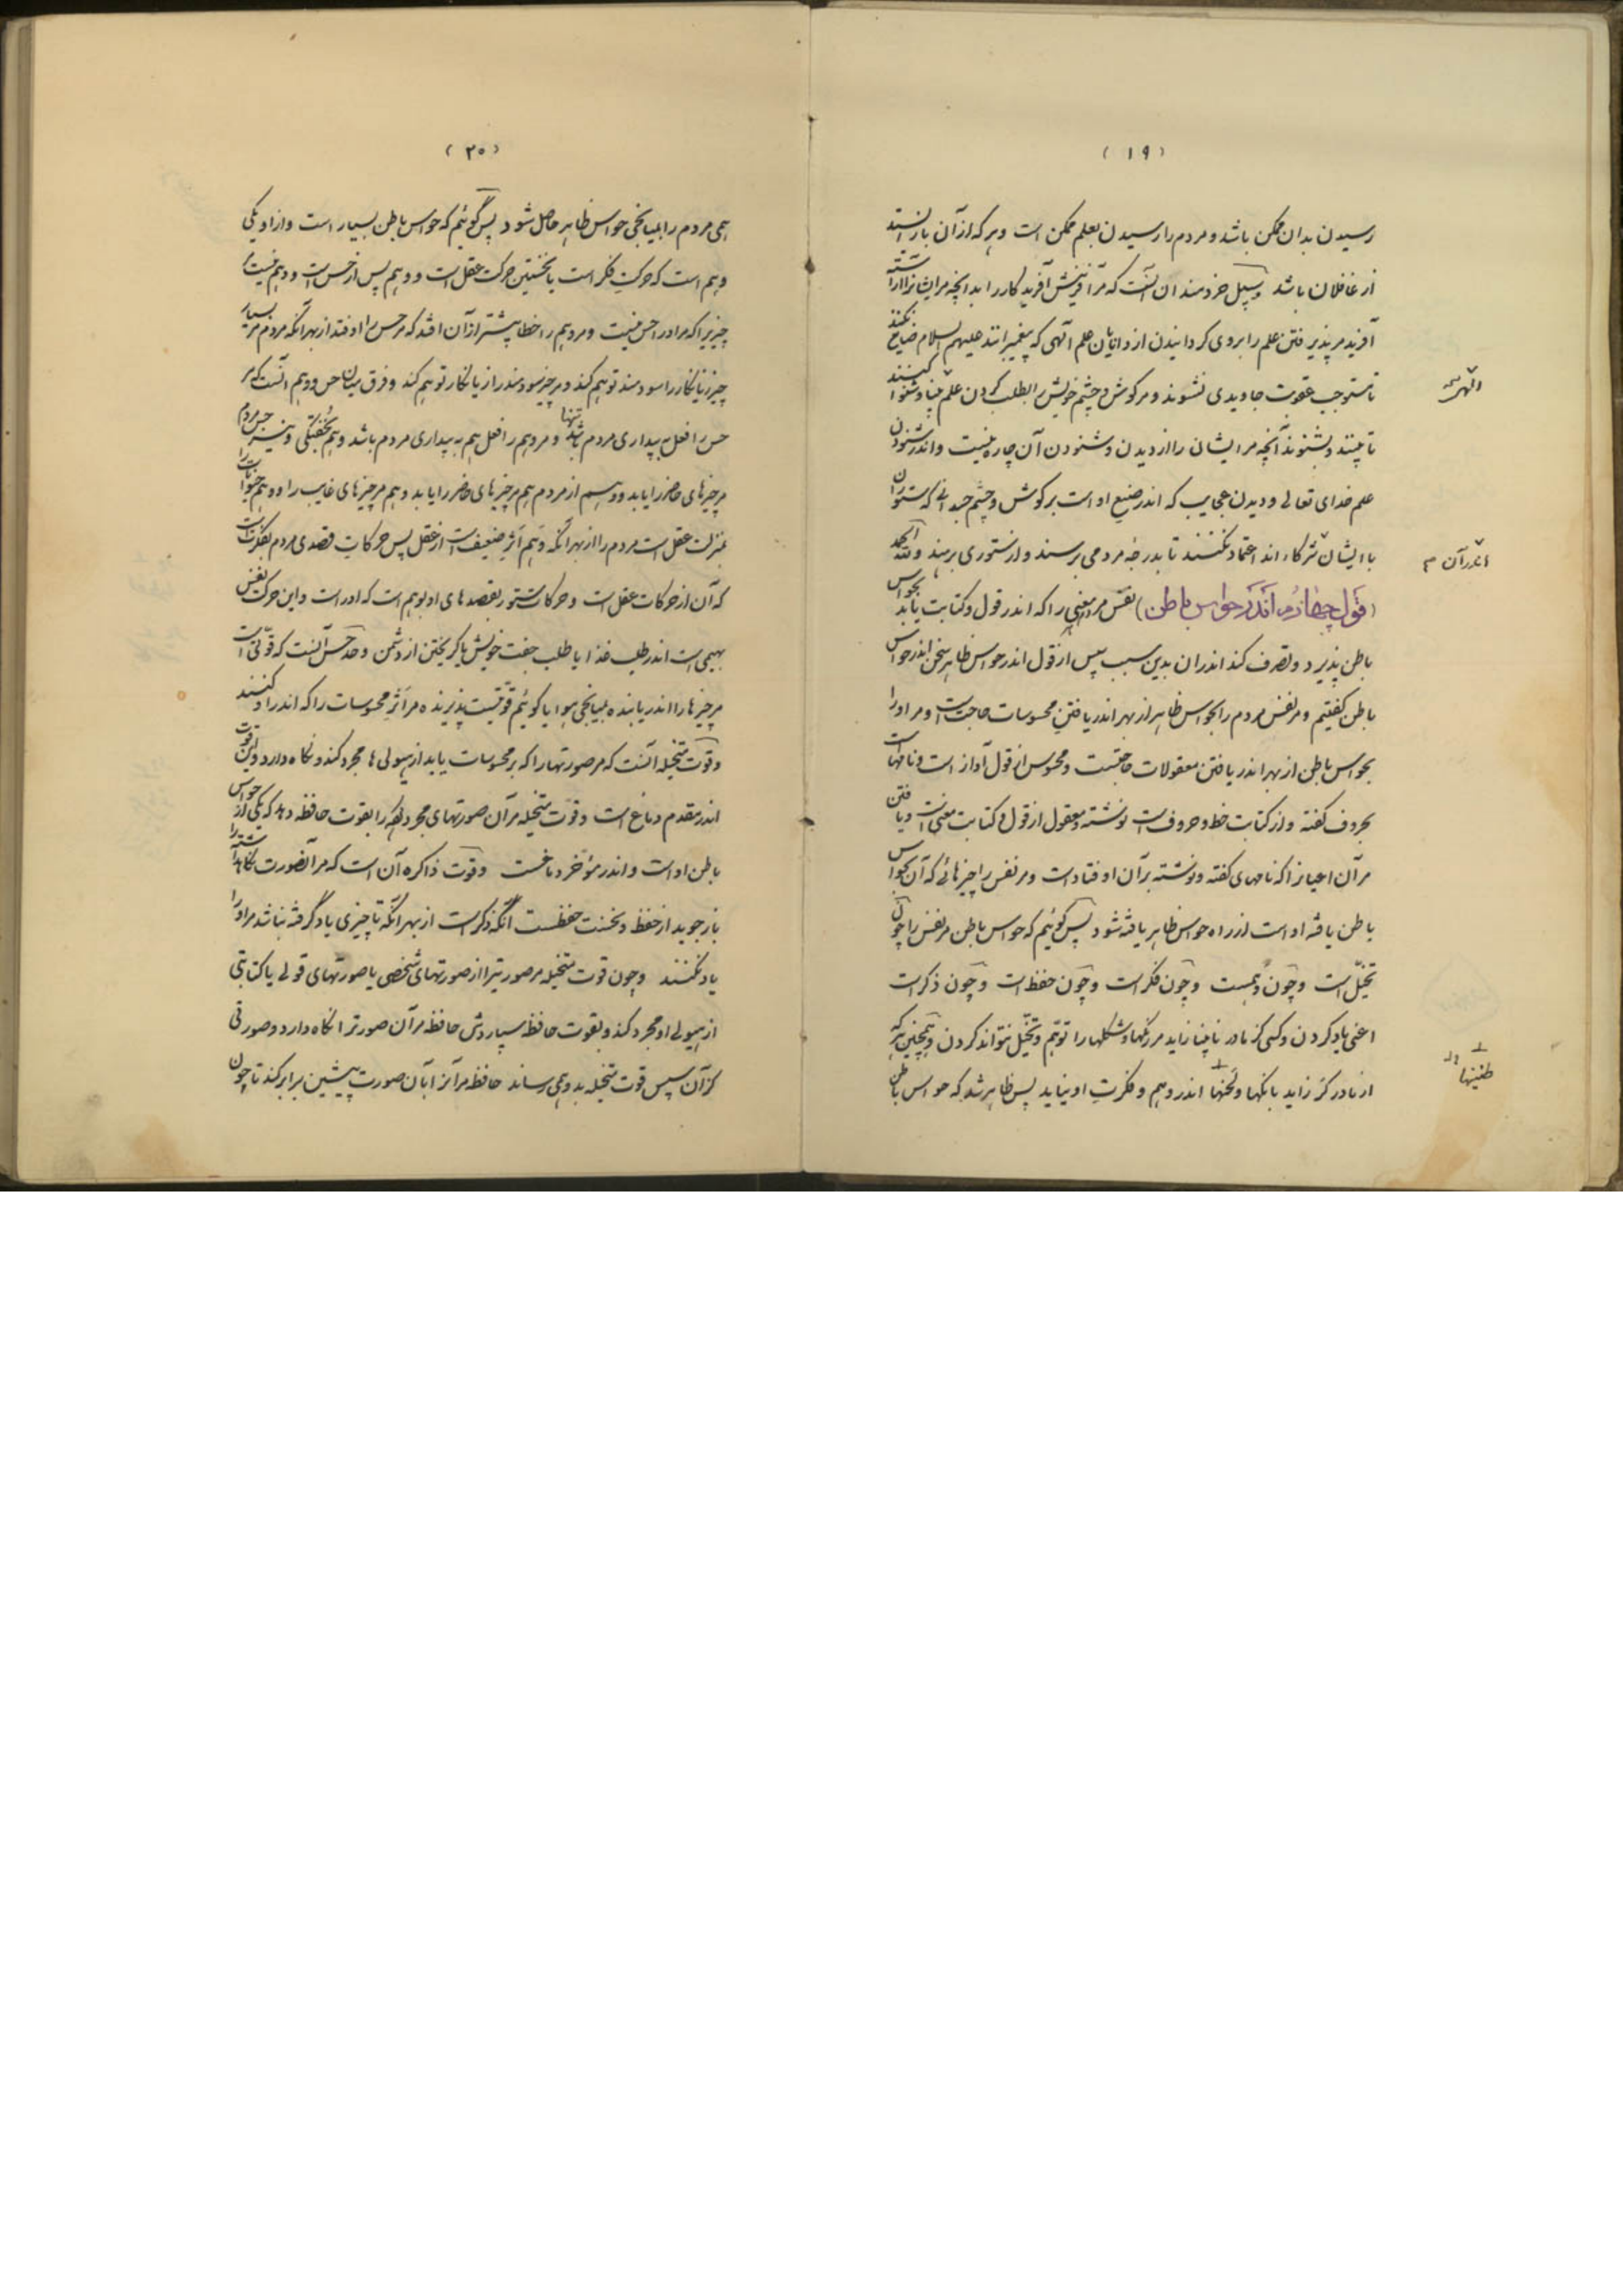 (١٩)
رسیدن بدان ممکن باشد و مردم را رسیدن بعلم ممکن است و هر که از آن باز ایستد
از غافلان باشد و سبیل خردمندان آنست که مر آفرینش آفریدگار را بدانچه مر ایشانرا آراسته
آفرید مر پذیرفتن علم را بروی گردانیدن از دانایان علم الهی که پیغمبرانند علیهم السلام ضایع نکنند
تا مستوجب عقوبت جاویدی نشوند و مر گوش و چشم خویش را بطلب کردن علم بینا و شنوا کنند
تا ببینند و بشنوند آنچه مر ایشان را از دیدن و شنودن آن چاره نیست و اندر شنودن
علم خدای تعالی و دیدن عجایب که اندر صنع او است بر گوش و چشم جسدانی که ستوران
با ایشان شرکاء اند اعتماد نکنند تا بدرجهٔ مردمی برسند و از ستوری برهند و لله الحمد
(قول چهارم اندر حواس باطن) نفس مردم معنی را که اندر قول و کتابت یابد بحواس
باطن پذیرد و تصرف کند اندران بدین سبب سپس از قول اندر حواس ظاهر سخن اندر حواس
باطن گفتیم و مر نفس مردم را بحواس ظاهر از بهر اندر یافتن محسوسات حاجت است و مر او را
بحواس باطن از بهر اندر یافتن معقولات حاجتست و محسوس از قول آواز است و نامهاست
بحروف گفته و از کتابت خط و حروف است نوشته و معقول از قول و کتابت معنی است و یافتن
مر آن اعیانرا که نامهای گفته و نوشته بر آن اوفتاد است و مر نفس را چیزهائی که آن بحواس
باطن یافتهٔ او است از راه حواس ظاهر یافته شود پس گوئیم که حواس باطن مر نفس را چون
تخیّل است و چون وهمست و چون فکر است و چون حفظ است و چون ذکر است
اعنی یاد کردن و کسی کز مادر نابینا زاید مر رنگها و شکلها را توهّم و تخیّل نتواند کردن و همچنین هر که
از مادر کر زاید بانگها و لحنها اندر وهم و فکرت او نیاید پس ظاهر شد که حواس باطن
اندر آن
طنینها
(٢٠)
همی مردم را بمیانجی حواس ظاهر حاصل شود پس گوئیم که حواس باطن بسیار است و از او یکی
وهم است که حرکت فکر است یا نخستین حرکت عقل است و وهم پس از حس است و وهم نیست
چیزیرا که مر او را حس نیست و مر وهم را خطا بیشتر از آن افتد که مر حس را اوفتد از بهر آنکه مردم مر بسیار
چیز زیانکار را سودمند توهّم کند و مر چیز سودمند را زیانکار توهّم کند و فرق میان حس و وهم آنست که مر
حس را فعل به بیداری مردم باشد تنها و مر وهم را فعل هم به بیداری مردم باشد و هم بخفتگی و نیز حس مردم
مر چیزهای حاضر را یابد و وهم از مردم هم مر چیزهای حاضر را یابد و هم مر چیزهای غایب را و وهم حیوانات را
بمنزلت عقل است مردم را از بهر آنکه وهم اثر ضعیفست از عقل پس حرکات قصدی مردم بفکرتست
که آن از حرکات عقل است و حرکات ستور بقصدهای او بوهم است که او راست و این حرکت نفس
بهیمی است اندر طلب غذا یا طلب جفت خویش یا گریختن از دشمن و حدّ حس آنست که قوّتی است
مر چیزها را اندر یابنده بمیانجی هوا یا گوئیم قوّتیست پذیرنده مر اثر محسوسات را که اندر او کنند
و قوّت متخیله آنست که مر صورتها را که بر محسوسات یابد از هیولی ها مجرد کند و نگاه دارد و این قوت
اندر مقدم دماغ است و قوّت متخیله مر آن صورتهای مجرد کرده را بقوت حافظه دهد که یکی از حواس
باطن او است و اندر مؤخر دماغست و قوّت ذاکره آن است که مر آنصورت نگاهداشته را
باز جوید از حفظ و نخست حفظست آنگه ذکر است از بهر آنکه تا چیزی یاد گرفته نباشد مر او را
یاد نکنند و چون قوت متخیله مر صورتیرا از صورتهای شخصی یا صورتهای قولی یا کتابتی
از هیولی او مجرد کند و بقوت حافظ سپاردش حافظه مر آن صورترا نگاه دارد و صورتی
کز آن سپس قوت متخیله بدو همی رساند حافظه مر آنرا بآن صورت پیشین برابر کند تا چون